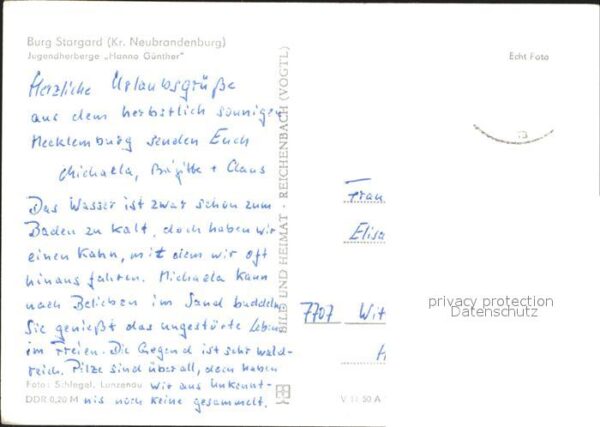 Burg Stargard (Kr. Neubrandenburg)
Jugendherberge „Hanno Günther“
Herzliche Urlaubsgrüße
aus dem herbstlich sonnigen
Mecklemburg senden Euch
Michaela, Brigitte + Claus
Das Wasser ist zwar schon zum
Baden zu kalt, doch haben wir
einen Kahn, mit dem wir oft
hinaus fahren. Michaela kann
nach Belieben im Sand buddeln
Sie genießt das ungestörte Leben
im Freien. Die Gegend ist sehr wald-
reich. Pilze sind überall, doch haben
wir aus Unkennt-
nis noch keine gesammelt.
Foto: Schlegel, Lunzenau
DDR 0,20 M
BILD UND HEIMAT · REICHENBACH (VOGTL)
Echt Foto
Frau
Elisa
7707 Wit
V 11 50 A
privacy protection
Datenschutz